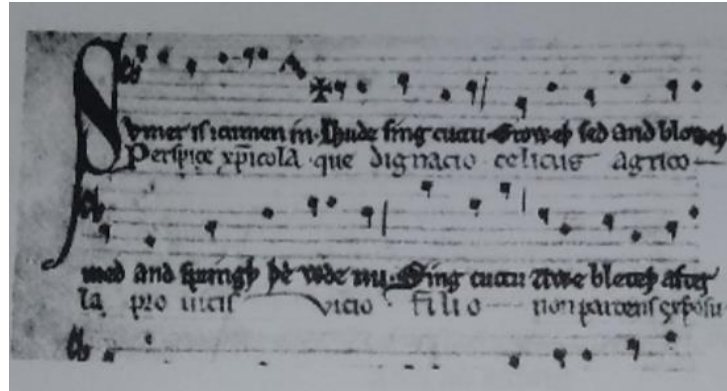 Sumer is icumen in. Lhude sing cuccu. Groweþ sed and bloweþ
Perspice xp̅icola que dignacio celicus agrico
med and springþ þe wde nu. Sing cuccu Awe bleteþ after
la pro uitis vicio filio non parcens exposu